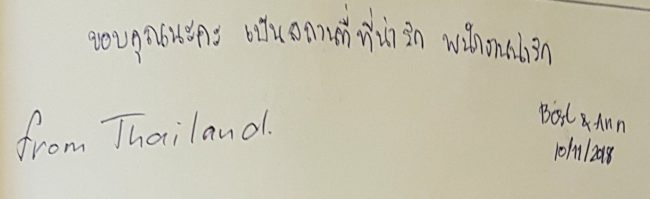 ขอบคุณนะคะ เป็นสถานที่ที่น่ารัก พนักงานน่ารัก
from Thailand.
& Ann
10/11/2018